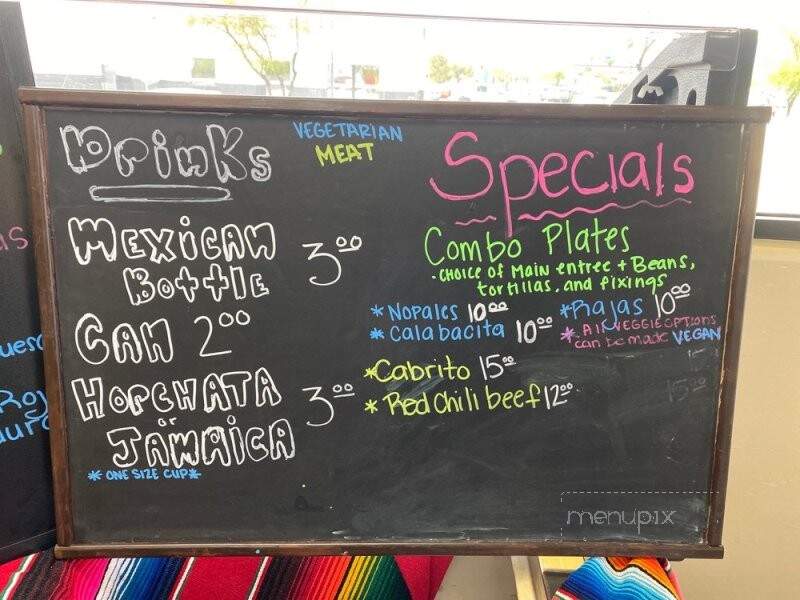 Drinks
VEGETARIAN
MEAT
Specials
MEXICAN
BOTTLE
3.00
CAN 2.00
HORCHATA
or
JAMAICA
3.00
*ONE SIZE CUP*
Combo Plates
-CHOICE OF MAIN entree + Beans,
tortillas, and fixings
*Nopales 10.00
*Rajas 10.00
*Calabacita 10.00
*All VEGGIE OPTIONS
can be made VEGAN
*Cabrito 15.00
*Red Chili beef 12.00
15.00
menupix